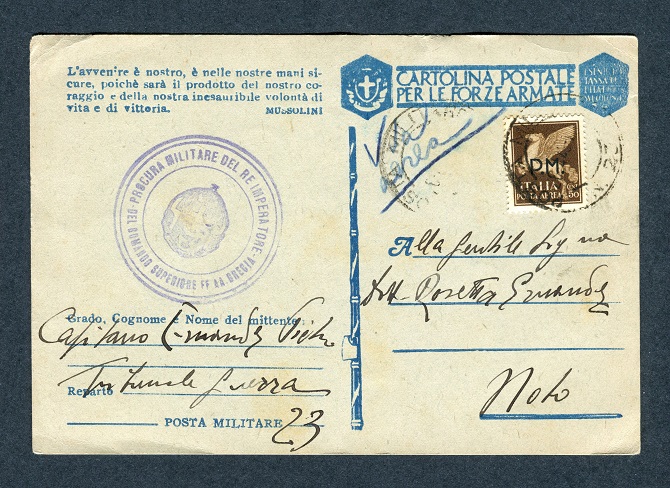 L'avvenire è nostro, è nelle nostre mani si-
cure, poichè sarà il prodotto del nostro co-
raggio e della nostra inesauribile volontà di
vita e di vittoria.
MUSSOLINI
CARTOLINA POSTALE
PER LE FORZE ARMATE
aerea
P.M.
ITALIA
POSTA AEREA
50
PROCURA MILITARE DEL RE IMPERATORE
DEL COMANDO SUPERIORE FF. AA. GRECIA
Alla Gentile Sig.na
Dott. Rosetta
Noto
Grado, Cognome e Nome del mittente
Capitano
Reparto Tribunale Guerra
POSTA MILITARE 23